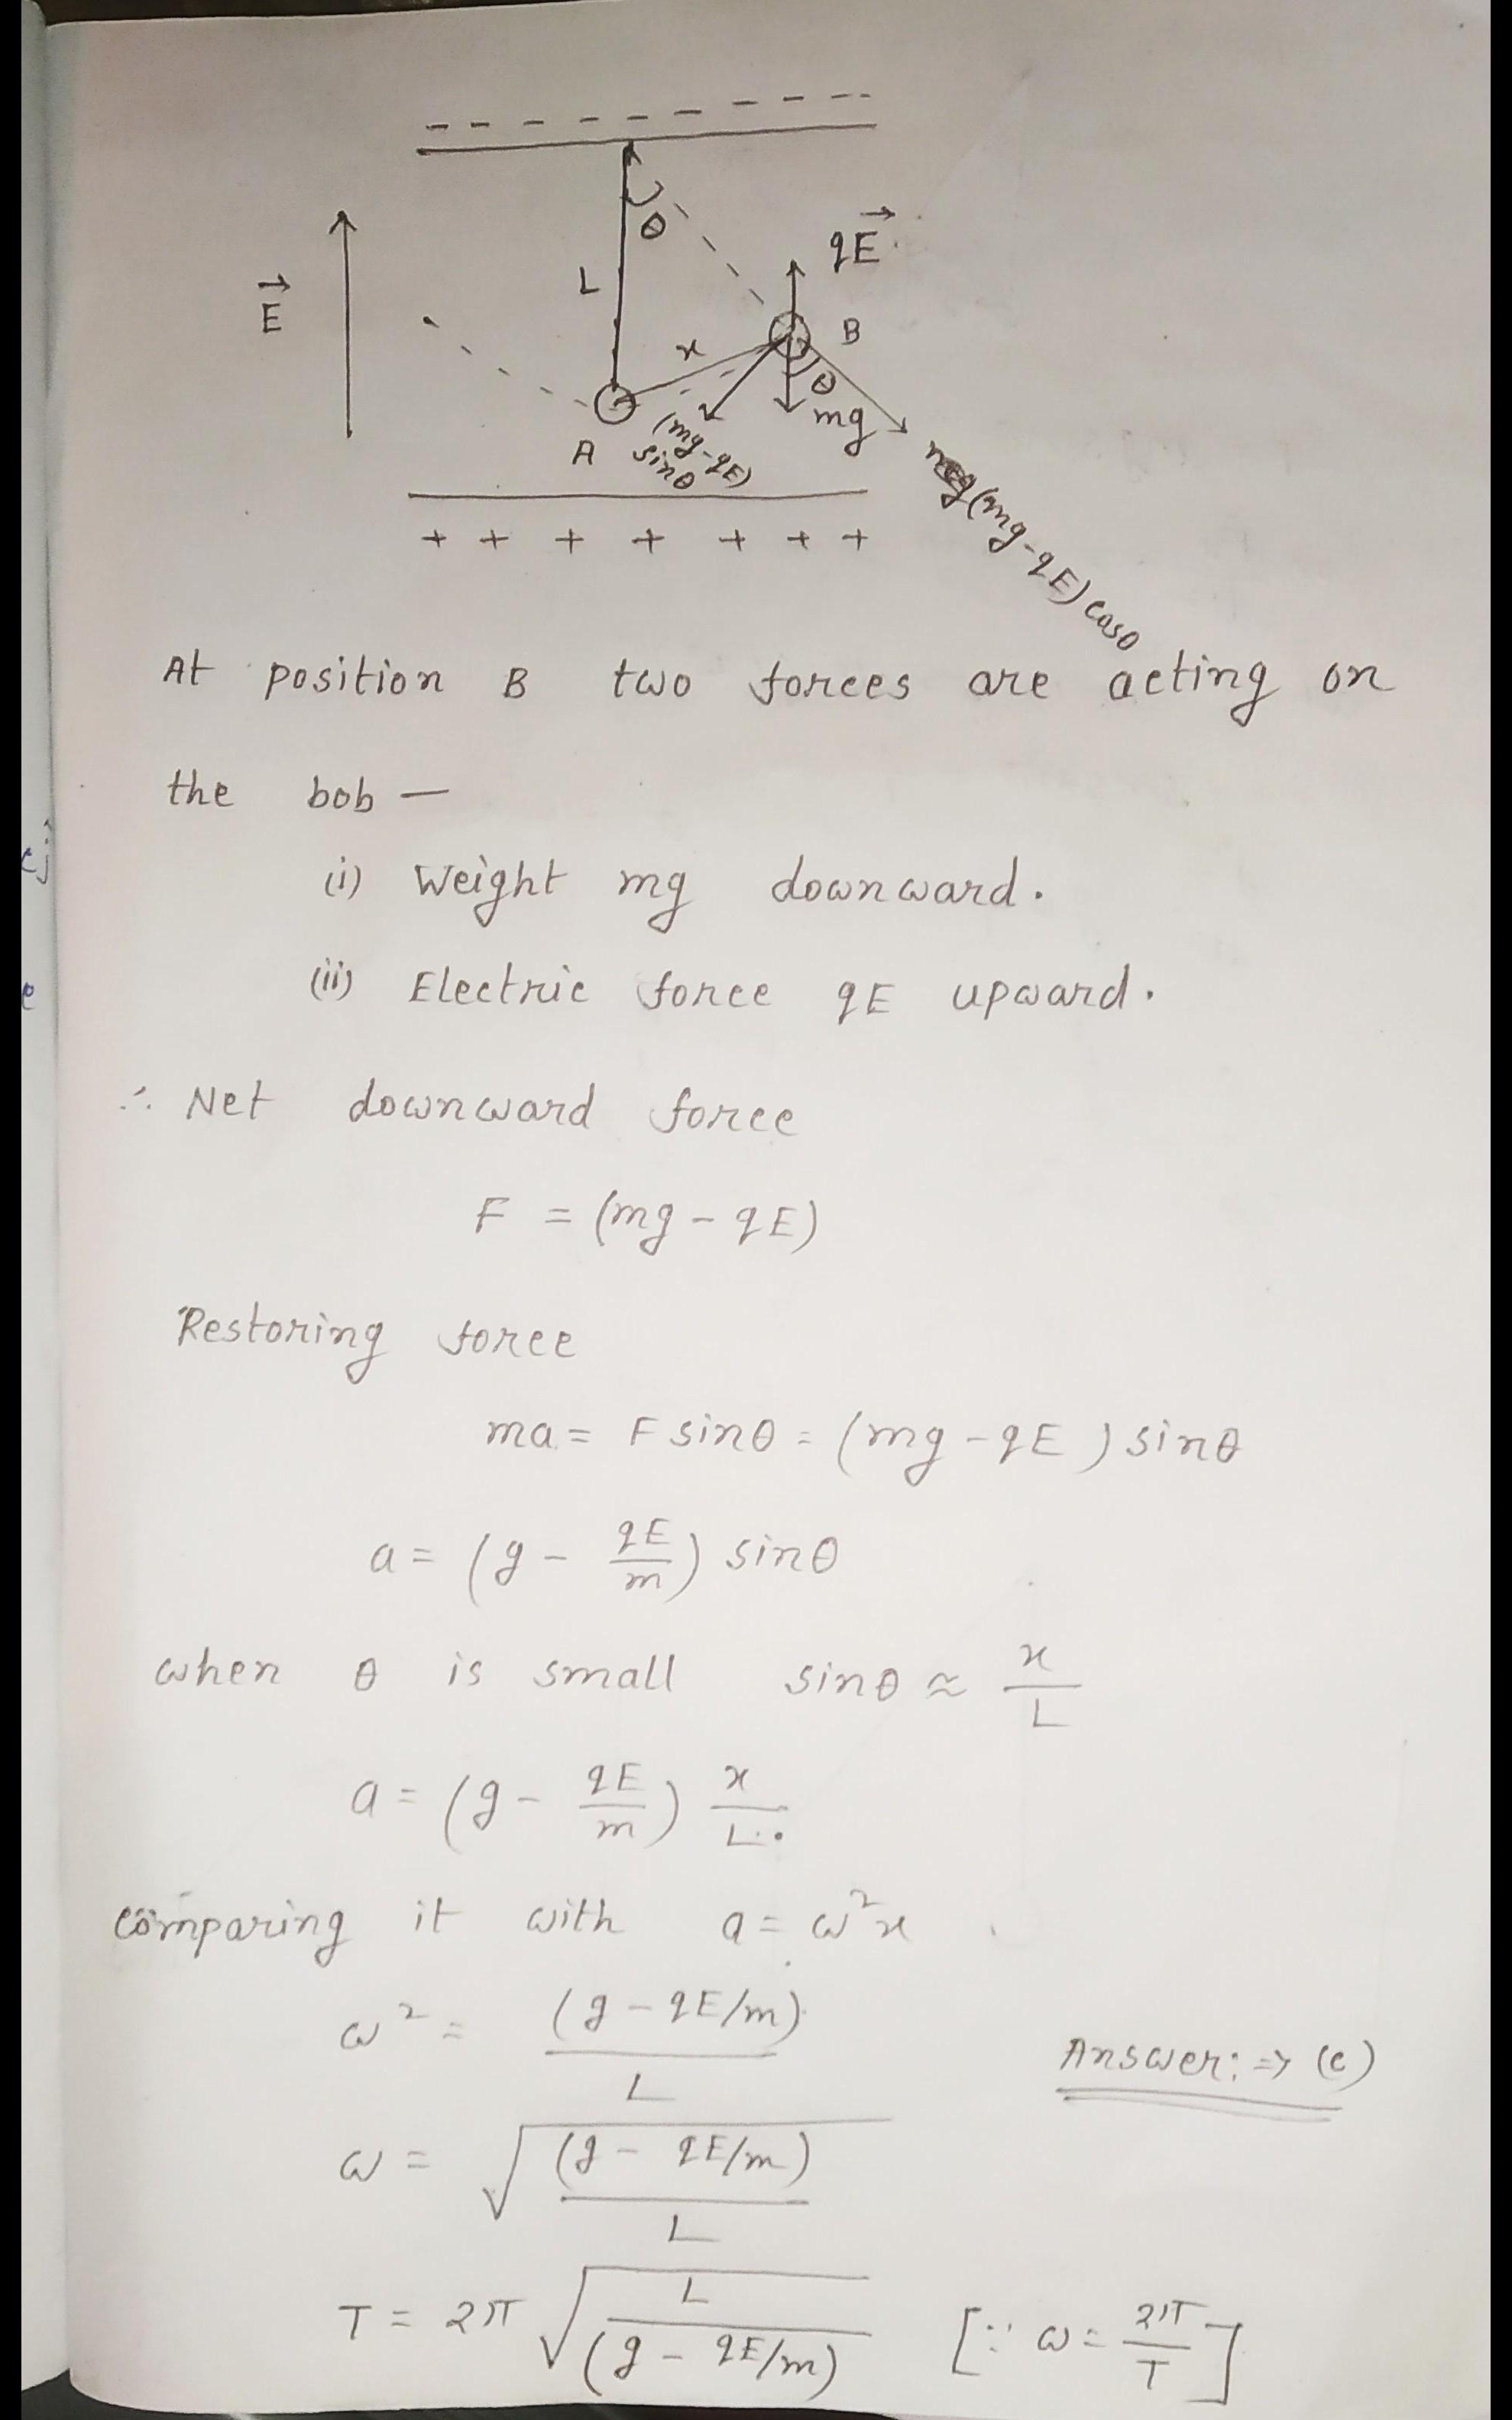 - - - - - - - - -
θ
qE⃗
E⃗
L
B
x
θ
mg
A
(mg-qE)
sinθ
(mg-qE) cosθ
+ + + + + + +
At position B two forces are acting on
the bob —
(i) Weight mg downward.
(ii) Electric force qE upward.
∴ Net downward force
F = (mg - qE)
Restoring force
ma = F sinθ = (mg - qE) sinθ
a = (g - qE/m) sinθ
when θ is small sinθ ≈ x/L
a = (g - qE/m) x/L.
comparing it with a = ω²x
ω² = (g - qE/m)/L
Answer: ⇒ (c)
ω = √((g - qE/m)/L)
T = 2π √(L/(g - qE/m)) [∵ ω = 2π/T]